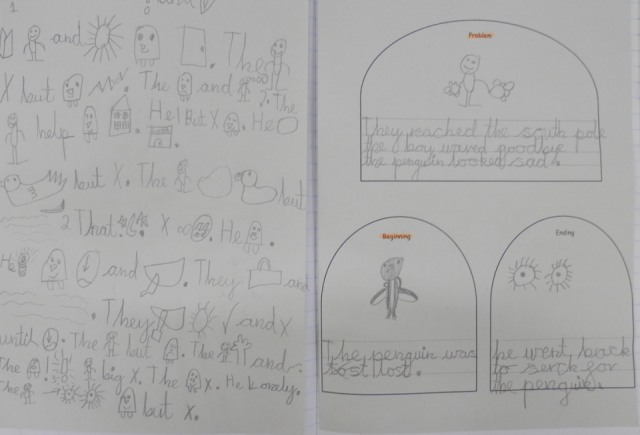 1
and
and The
X but The and ?. The
help He! But X He
but X. The but
? That. X He
He and They and
They and X
until The but The and
The big X. The X. He lonely.
The but X.
Problem
They reached the south pole
the boy waved goodbye
the penguin looked sad.
Beginning
The penguin was
lost.
Ending
he went back
to serck for
the penguin.